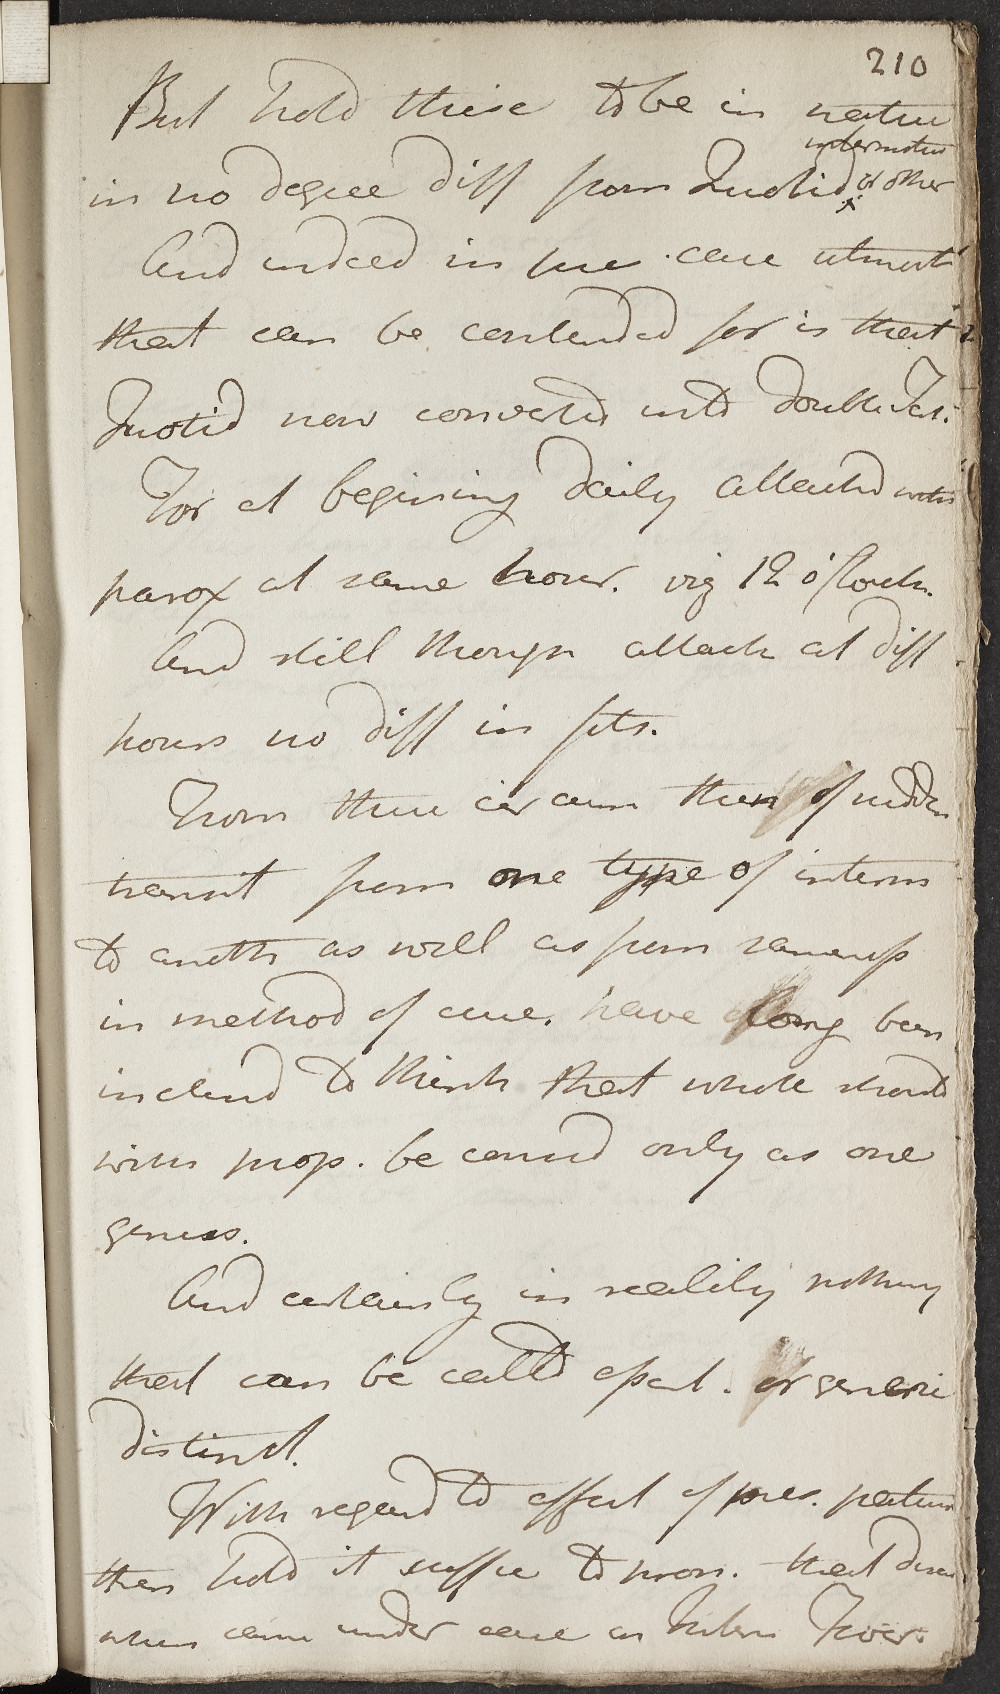 210
But hold these to be in nature
intermitten
in no degree diff from Quotid. or other
And indeed in pres. case utmost
that can be contended for is that
Quotid now converted into double Ter.
For at begining daily attacked with
parox at same hour. viz 12 o'Clock.
And still though attack at diff
hours no diff in fits.
From these circum then of sudden
transit from one type of interm
to anoth as well as from sameness
in method of cure. have long been
inclend to think that whole should
with prop. be consid only as one
genus.
And certainly in reality nothing
that can be calld essent. or generic
distinct.
With regard to effect of pres. patient
then hold it suffic to pron. that disea
when came under care an Interm Fever.